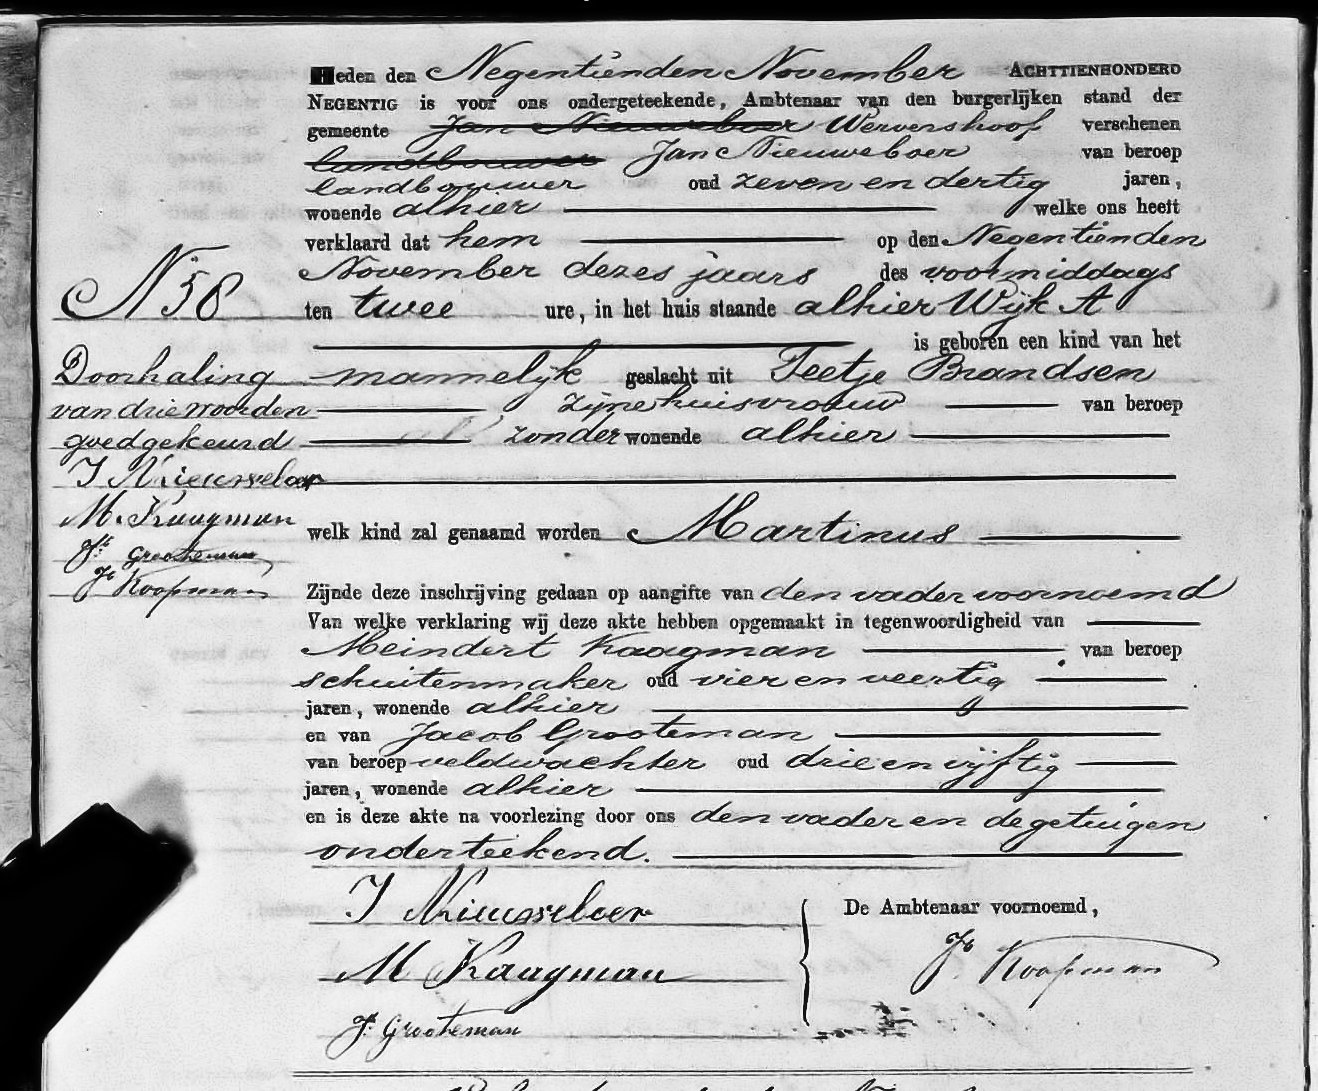 Heden den Negentienden November ACHTTIENHONDERD
NEGENTIG is voor ons ondergeteekende, Ambtenaar van den burgerlijken stand der
gemeente Jan Nieuweboer Wervershoof verschenen
landbouwer Jan Nieuweboer van beroep
landbouwer oud zeven en dertig jaren,
wonende alhier welke ons heeft
verklaard dat hem op den Negentienden
November dezes jaars des voormiddags
ten twee ure, in het huis staande alhier Wijk A
is geboren een kind van het
mannelijk geslacht uit Teetje Brandsen
zijne huisvrouw van beroep
zonder wonende alhier
welk kind zal genaamd worden Martinus
Zijnde deze inschrijving gedaan op aangifte van den vader voornoemd
Van welke verklaring wij deze akte hebben opgemaakt in tegenwoordigheid van
Meindert Kaagman van beroep
schuitenmaker oud vier en veertig
jaren, wonende alhier
en van Jacob Grooteman
van beroep veldwachter oud drie en vijftig
jaren, wonende alhier
en is deze akte na voorlezing door ons den vader en de getuigen
onderteekend.
J Nieuweboer
M Kaagman
J. Grooteman
De Ambtenaar voornoemd,
Jb Koopman
N 58
Doorhaling
van drie woorden
goedgekeurd
J Nieuweboer
M. Kaagman
Jb Grooteman
Jb Koopman